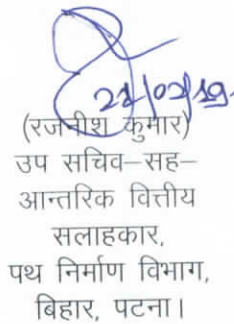 21/02/19
(रजनीश कुमार)
उप सचिव-सह-
आन्तरिक वित्तीय
सलाहकार,
पथ निर्माण विभाग,
बिहार, पटना।